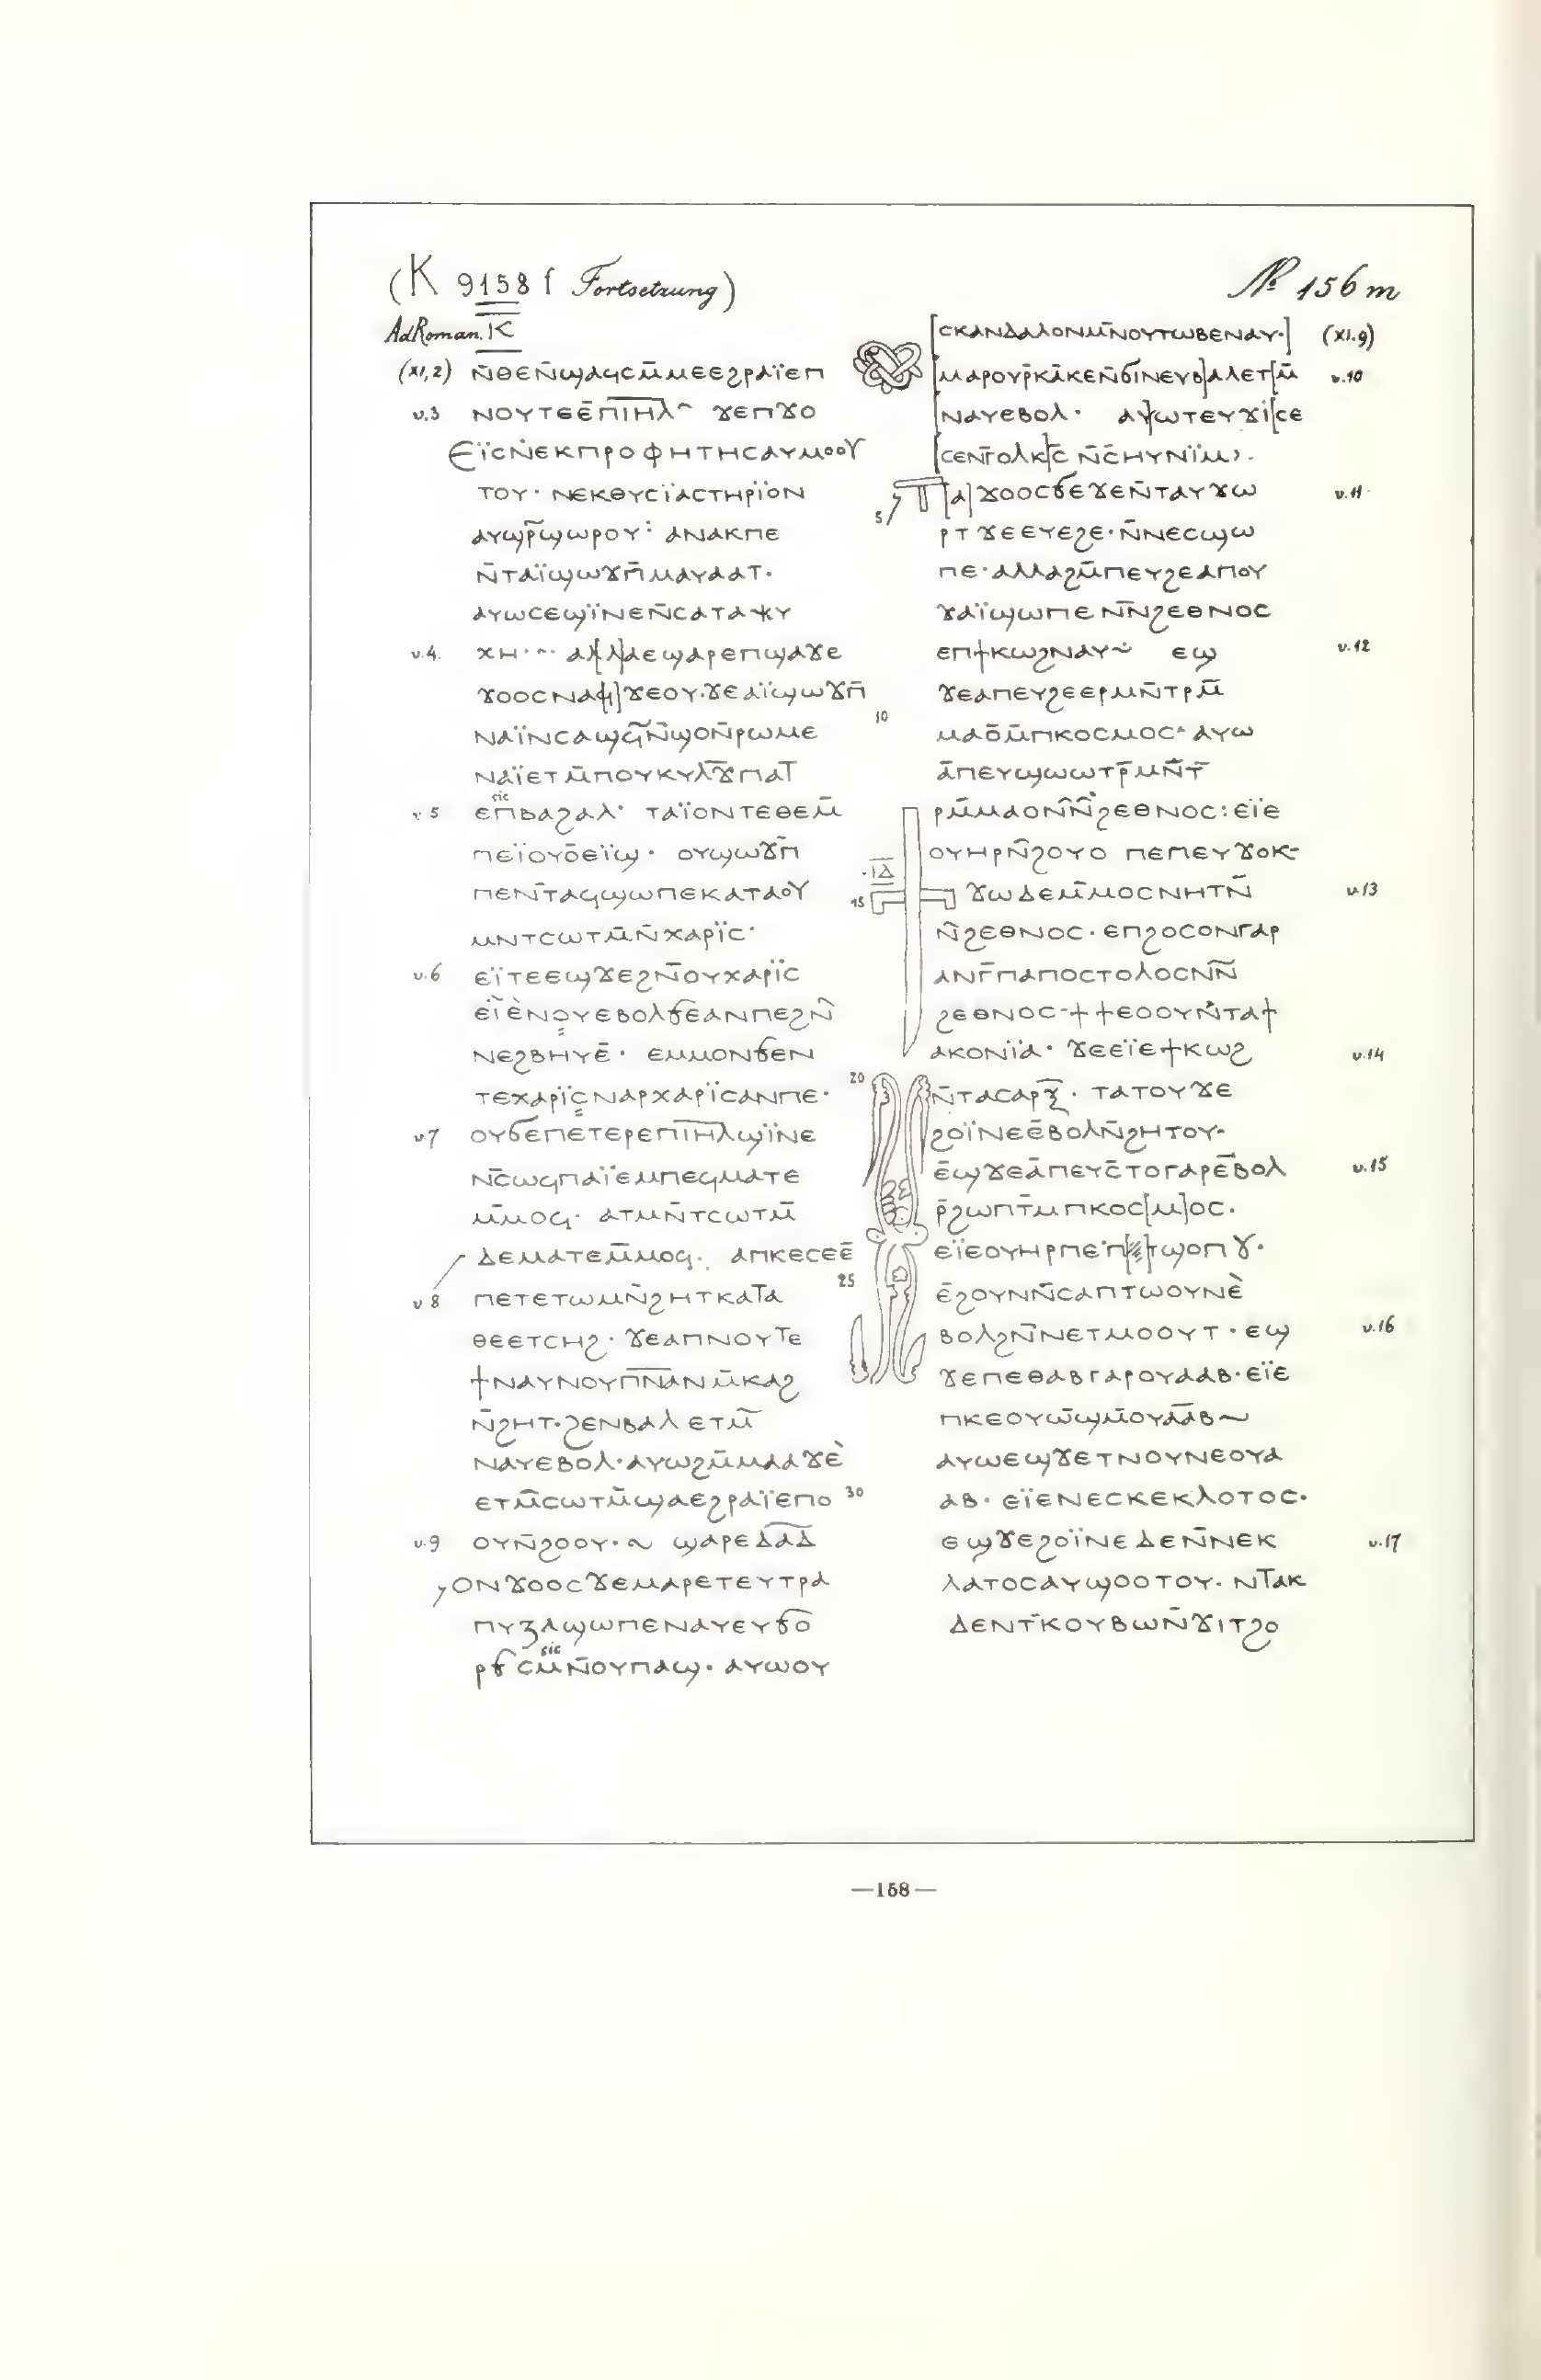 (K 9158 f Fortsetzung)
№ 156 m
Ad Roman. ⲓⲕ
(XI,2) ⲛ̄ⲑⲉⲛ̄ϣⲁϥⲥⲙ̄ⲙⲉⲉϩⲣⲁⲓ̈ⲉⲡ
v.3 ⲛⲟⲩⲧⲉⲉ̄ⲡⲓ̅ⲏ̅ⲗ̅ ϫⲉⲡϫⲟ
ⲉⲓ̈ⲥⲛ̄ⲉⲕⲡⲣⲟⲫⲏⲧⲏⲥⲁⲩⲙⲟⲟⲩ
ⲧⲟⲩ· ⲛⲉⲕⲑⲩⲥⲓ̈ⲁⲥⲧⲏⲣⲓ̈ⲟⲛ
ⲁⲩϣⲣ̄ϣⲱⲣⲟⲩ: ⲁⲛⲁⲕⲡⲉ
ⲛ̄ⲧⲁⲓ̈ϣⲱϫⲡ̄ⲙⲁⲩⲁⲁⲧ·
ⲁⲩⲱⲥⲉϣⲓ̈ⲛⲉⲛ̄ⲥⲁⲧⲁⲯⲩ
v.4. ⲭⲏ·~ ⲁⲗ[ⲗ]ⲁⲉϣⲁⲣⲉⲡϣⲁϫⲉ
ϫⲟⲟⲥⲛⲁ[ϥ]ϫⲉⲟⲩ·ϫⲉⲁⲓ̈ϣⲱϫⲡ̄
ⲛⲁⲓ̈ⲛⲥⲁϣϥ̄ⲛ̄ϣⲟⲛ̄ⲣⲱⲙⲉ
ⲛⲁⲓ̈ⲉⲧⲙ̄ⲡⲟⲩⲕⲩⲗ̅ϫ̅ⲡⲁⲧ
sic
v.5 ⲉⲡ̄ⲃⲁϩⲁⲗ· ⲧⲁⲓ̈ⲟⲛⲧⲉⲑⲉⲙ̄
ⲡⲉⲓ̈ⲟⲩⲟ̄ⲉⲓ̈ϣ· ⲟⲩϣⲱϫⲡ̄
ⲡⲉⲛ̄ⲧⲁϥϣⲱⲡⲉⲕⲁⲧⲁⲟⲩ
ⲙⲛⲧⲥⲱⲧⲙ̄ⲛ̄ⲭⲁⲣⲓ̈ⲥ·
v.6 ⲉⲓ̈ⲧⲉⲉϣϫⲉϩⲛ̄ⲟⲩⲭⲁⲣⲓ̈ⲥ
ⲉⲓ̈ⲉ̀ⲛⲟⲩⲉⲃⲟⲗϭⲉⲁⲛⲡⲉϩⲛ̄
ⲛⲉϩⲃⲏⲩⲉ̄· ⲉⲙⲙⲟⲛϭⲉⲛ
ⲧⲉⲭⲁⲣⲓ̈ⲥⲛⲁⲣⲭⲁⲣⲓ̈ⲥⲁⲛⲡⲉ·
v.7 ⲟⲩϭⲉⲡⲉⲧⲉⲣⲉⲡⲓ̅ⲏ̅ⲗ̅ϣⲓ̈ⲛⲉ
ⲛ̄ⲥⲱϥⲡⲁⲓ̈ⲉ̄ⲙⲡⲉϥⲙⲁⲧⲉ
ⲙ̄ⲙⲟϥ· ⲁⲧⲙⲛ̄ⲧⲥⲱⲧⲙ̄
ⲇⲉⲙⲁⲧⲉⲙ̄ⲙⲟϥ· ⲁⲡⲕⲉⲥⲉⲉ̄
v 8 ⲡⲉⲧⲉⲧⲱⲙⲛ̄ϩⲏⲧⲕⲁⲧⲁ
ⲑⲉⲉⲧⲥⲏϩ· ϫⲉⲁⲡⲛⲟⲩⲧⲉ
ϯⲛⲁⲩⲛⲟⲩⲡ̅ⲛ̅ⲁ̅ⲛⲙ̄ⲕⲁϩ
ⲛ̄ϩⲏⲧ·ϩⲉⲛⲃⲁⲗ ⲉⲧⲙ̄
ⲛⲁⲩⲉⲃⲟⲗ·ⲁⲩⲱϩⲙ̄ⲙⲁⲁϫⲉ̀
ⲉⲧⲙ̄ⲥⲱⲧⲙ̄ϣⲁⲉϩⲣⲁⲓ̈ⲉⲡⲟ
v.9 ⲟⲩⲛ̄ϩⲟⲟⲩ·~ ϣⲁⲣⲉⲇ̅ⲁ̅ⲇ̅
ⲟⲛϫⲟⲟⲥϫⲉⲙⲁⲣⲉⲧⲉⲩⲧⲣⲁ
ⲡⲩⲍⲁϣⲱⲡⲉⲛⲁⲩⲉⲩϭⲟ
sic
ⲣϭⲥ̄ⲙⲛ̄ⲟⲩⲡⲁϣ· ⲁⲩⲱⲟⲩ
[ⲥⲕⲁⲛⲇⲁⲗⲟⲛⲙⲛ̄ⲟⲩⲧⲱⲃⲉⲛⲁⲩ·] (XI.9)
[ⲙⲁⲣⲟⲩⲣ̄ⲕⲁⲕⲉⲛ̄ϭⲓⲛⲉⲩⲃ]ⲁⲗⲉⲧ[ⲙ̄ v.10
[ⲛⲁⲩⲉⲃⲟⲗ· ⲁⲩ]ⲱⲧⲉⲩϫⲓ[ⲥⲉ
[ⲥⲉⲛ̄ⲅⲟⲗⲕ]ⲥ̄ ⲛ̄ⲥ̄ⲏⲩⲛⲓ̈ⲙ·
5 ⲡ[ⲁ]ϫⲟⲟⲥϭⲉϫⲉⲛ̄ⲧⲁⲩϫⲱ v.11
ⲣⲧ ϫⲉⲉⲩⲉϩⲉ·ⲛ̄ⲛⲉⲥϣⲱ
ⲡⲉ·ⲁⲗⲗⲁϩⲙ̄ⲡⲉⲩϩⲉⲁⲡⲟⲩ
ϫⲁⲓ̈ϣⲱⲡⲉ ⲛ̄ⲛ̄ϩⲉⲑⲛⲟⲥ
ⲉⲡϯⲕⲱϩⲛⲁⲩ~ ⲉϣ v.12
10 ϫⲉⲁⲡⲉⲩϩⲉⲉⲣⲙⲛ̄ⲧⲣⲙ̄
ⲙⲁⲟ̄ⲙ̄ⲡⲕⲟⲥⲙⲟⲥ· ⲁⲩⲱ
ⲁ̄ⲡⲉⲩϣⲱⲱⲧⲣ̄ⲙⲛ̄ⲧ̄
ⲣⲙ̄ⲙⲁⲟⲛ̄ⲛ̄ϩⲉⲑⲛⲟⲥ:ⲉⲓ̈ⲉ
ⲟⲩⲏⲣⲛ̄ϩⲟⲩⲟ ⲡⲉⲡⲉⲩϫⲟⲕ-
·ⲓ̅ⲇ̅
15 ϫⲱⲇⲉⲙ̄ⲙⲟⲥⲛⲏⲧⲛ̄ v.13
ⲛ̄ϩⲉⲑⲛⲟⲥ·ⲉⲡϩⲟⲥⲟⲛⲅⲁⲣ
ⲁⲛⲅ̄ⲡⲁⲡⲟⲥⲧⲟⲗⲟⲥⲛ̄ⲛ̄
ϩⲉⲑⲛⲟⲥ·ϯϯⲉⲟⲟⲩⲛ̄ⲧⲁϯ
ⲁⲕⲟⲛⲓ̈ⲁ· ϫⲉⲉⲓ̈ⲉϯⲕⲱϩ v.14
20 ⲛ̄ⲧⲁⲥⲁⲣⲝ̄· ⲧⲁⲧⲟⲩϫⲉ
ϩⲟⲓ̈ⲛⲉⲉ̄ⲃⲟⲗⲛ̄ϩⲏⲧⲟⲩ·
ⲉ̄ϣϫⲉⲁ̄ⲡⲉⲩⲥ̄ⲧⲟⲅⲁⲣⲉ̄ⲃⲟⲗ v.15
ⲣ̄ϩⲱⲡⲧ̄ⲙⲡⲕⲟⲥ[ⲙ]ⲟⲥ·
ⲉⲓ̈ⲉⲟⲩⲏⲣⲡⲉⲡ[..]ϣⲟⲡϥ·
25 ⲉ̄ϩⲟⲩⲛⲛ̄ⲥⲁⲡⲧⲱⲟⲩⲛⲉ̀
ⲃⲟⲗϩⲛ̄ⲛⲉⲧⲙⲟⲟⲩⲧ·ⲉϣ v.16
ϫⲉⲡⲉⲑⲁⲃⲅⲁⲣⲟⲩⲁⲁⲃ·ⲉⲓ̈ⲉ
ⲡⲕⲉⲟⲩⲱ̄ϣⲙ̄ⲟⲩⲁ̄ⲁ̄ⲃ~
ⲁⲩⲱⲉϣϫⲉⲧⲛⲟⲩⲛⲉⲟⲩⲁ
30 ⲁⲃ· ⲉⲓ̈ⲉⲛⲉⲥⲕⲉⲕⲗⲟⲧⲟⲥ·
ⲉϣϫⲉϩⲟⲓ̈ⲛⲉⲇⲉⲛ̄ⲛⲉⲕ v.17
ⲗⲁⲧⲟⲥⲁⲩϣⲟⲟⲧⲟⲩ· ⲛⲧⲁⲕ
ⲇⲉⲛⲧ̄ⲕⲟⲩⲃⲱⲛ̄ϫⲓⲧϩⲟ
—158—